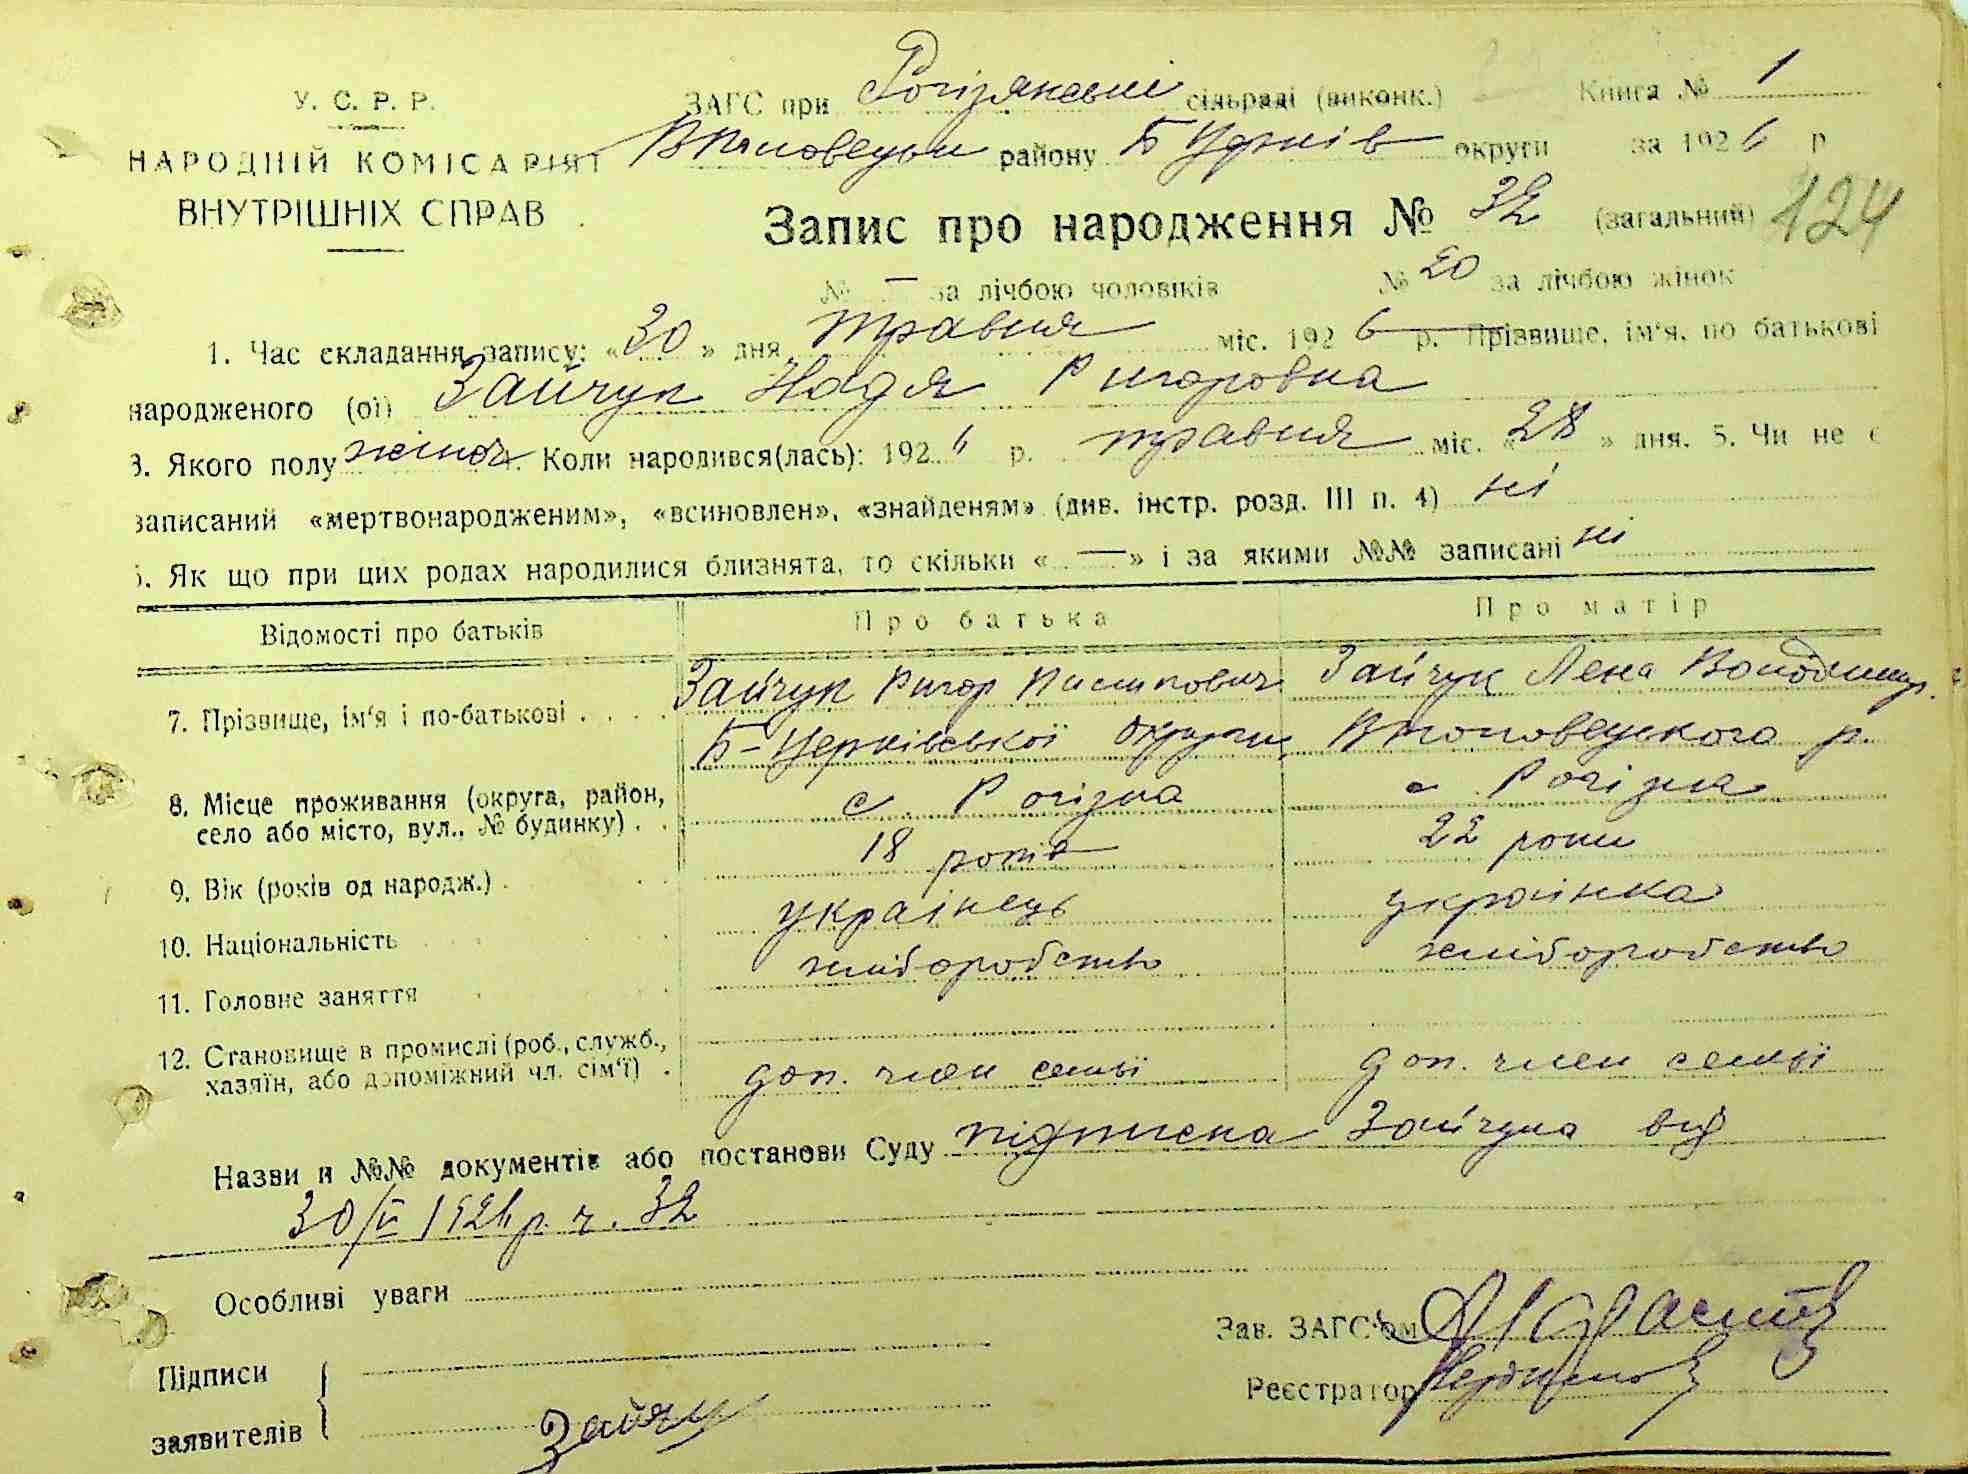 У. С. Р. Р.
НАРОДНІЙ КОМІСАРІЯТ
ВНУТРІШНІХ СПРАВ
ЗАГС при Рогізянські сільраді (виконк.) Книга № 1
району Б Церків округи за 1926 р
Запис про народження № 32 (загальний) 124
№ — за лічбою чоловіків № 20 за лічбою жінок
1. Час складання запису: «30» дня травня міс. 1926 р. Прізвище, ім'я, по батькові
народженого (ої) Зайчук Надя Ригоровна
3. Якого полу жіноч. Коли народився(лась): 1926 р. травня міс. «28» дня. 5. Чи не є
записаний «мертвонародженим», «всиновлен», «знайденям» (див. інстр. розд. III п. 4) ні
6. Як що при цих родах народилися близнята, то скільки «—» і за якими №№ записані ні
Відомості про батьків Про батька Про матір
7. Прізвище, ім'я і по-батькові . . . . Зайчук Ригор Пилипович Зайчук Лена Володимир.
Б-Церківської округи р.
8. Місце проживання (округа, район,
село або місто, вул.. № будинку) . . с Рогізна с Рогізна
9. Вік (років од народж.) . 18 років 22 роки
10. Національність українець українка
11. Головне заняття хліборобство хліборобство
12. Становище в промислі (роб., служб.,
хазяїн, або допоміжний чл. сім'ї) . доп. член семьї доп. член семьї
Назви и №№ документів або постанови Суду підписка Зайчука від
30/V 1926 р. ч. 32
Особливі уваги
Зав. ЗАГС'ом
Підписи
Реєстратор
заявителів Зайчу